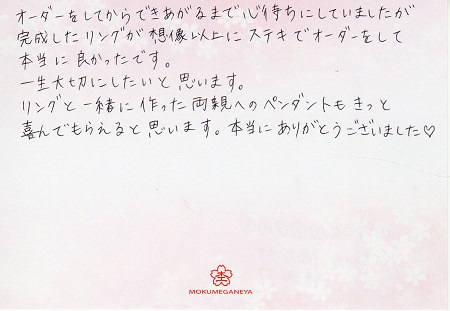 オーダーをしてからできあがるまで心待ちにしていましたが
完成したリングが想像以上にステキでオーダーをして
本当に良かったです。
一生大切にしたいと思います。
リングと一緒に作った両親へのペンダントもきっと
喜んでもらえると思います。本当にありがとうございました♡
MOKUMEGANEYA